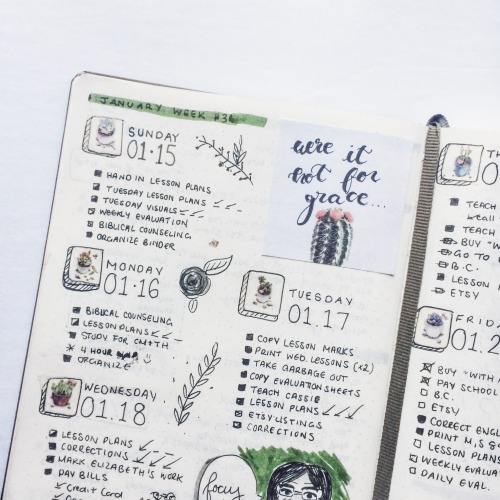 JANUARY WEEK #3
SUNDAY
01·15
HAND IN LESSON PLANS
TUESDAY LESSON PLANS
TUESDAY VISUALS
WEEKLY EVALUATION
BIBLICAL COUNSELING
ORGANIZE BINDER
were it
not for
grace...
MONDAY
01·16
BIBLICAL COUNSELING
LESSON PLANS
STUDY FOR
4 HOUR
ORGANIZE
TUESDAY
01.17
COPY LESSON MARKS
PRINT WED. LESSONS (x2)
TAKE GARBAGE OUT
COPY EVALUATION SHEETS
TEACH CASSIE
LESSON PLANS
ETSY LISTINGS
CORRECTIONS
WEDNESDAY
01.18
LESSON PLANS
CORRECTIONS
MARK ELIZABETH'S WORK
PAY BILLS
Credit Card
focus
TH
0
TEACH
TEACH
BUY "W
GO TO
B.C.
LESSON
ETSY
FRID
2
BUY "WITH
PAY SCHOOL
B.C.
ETSY
CORRECT ENGL
PRINT M, S &
LESSON PLANS
WEEKLY EVALUA
DAILY EVAL.